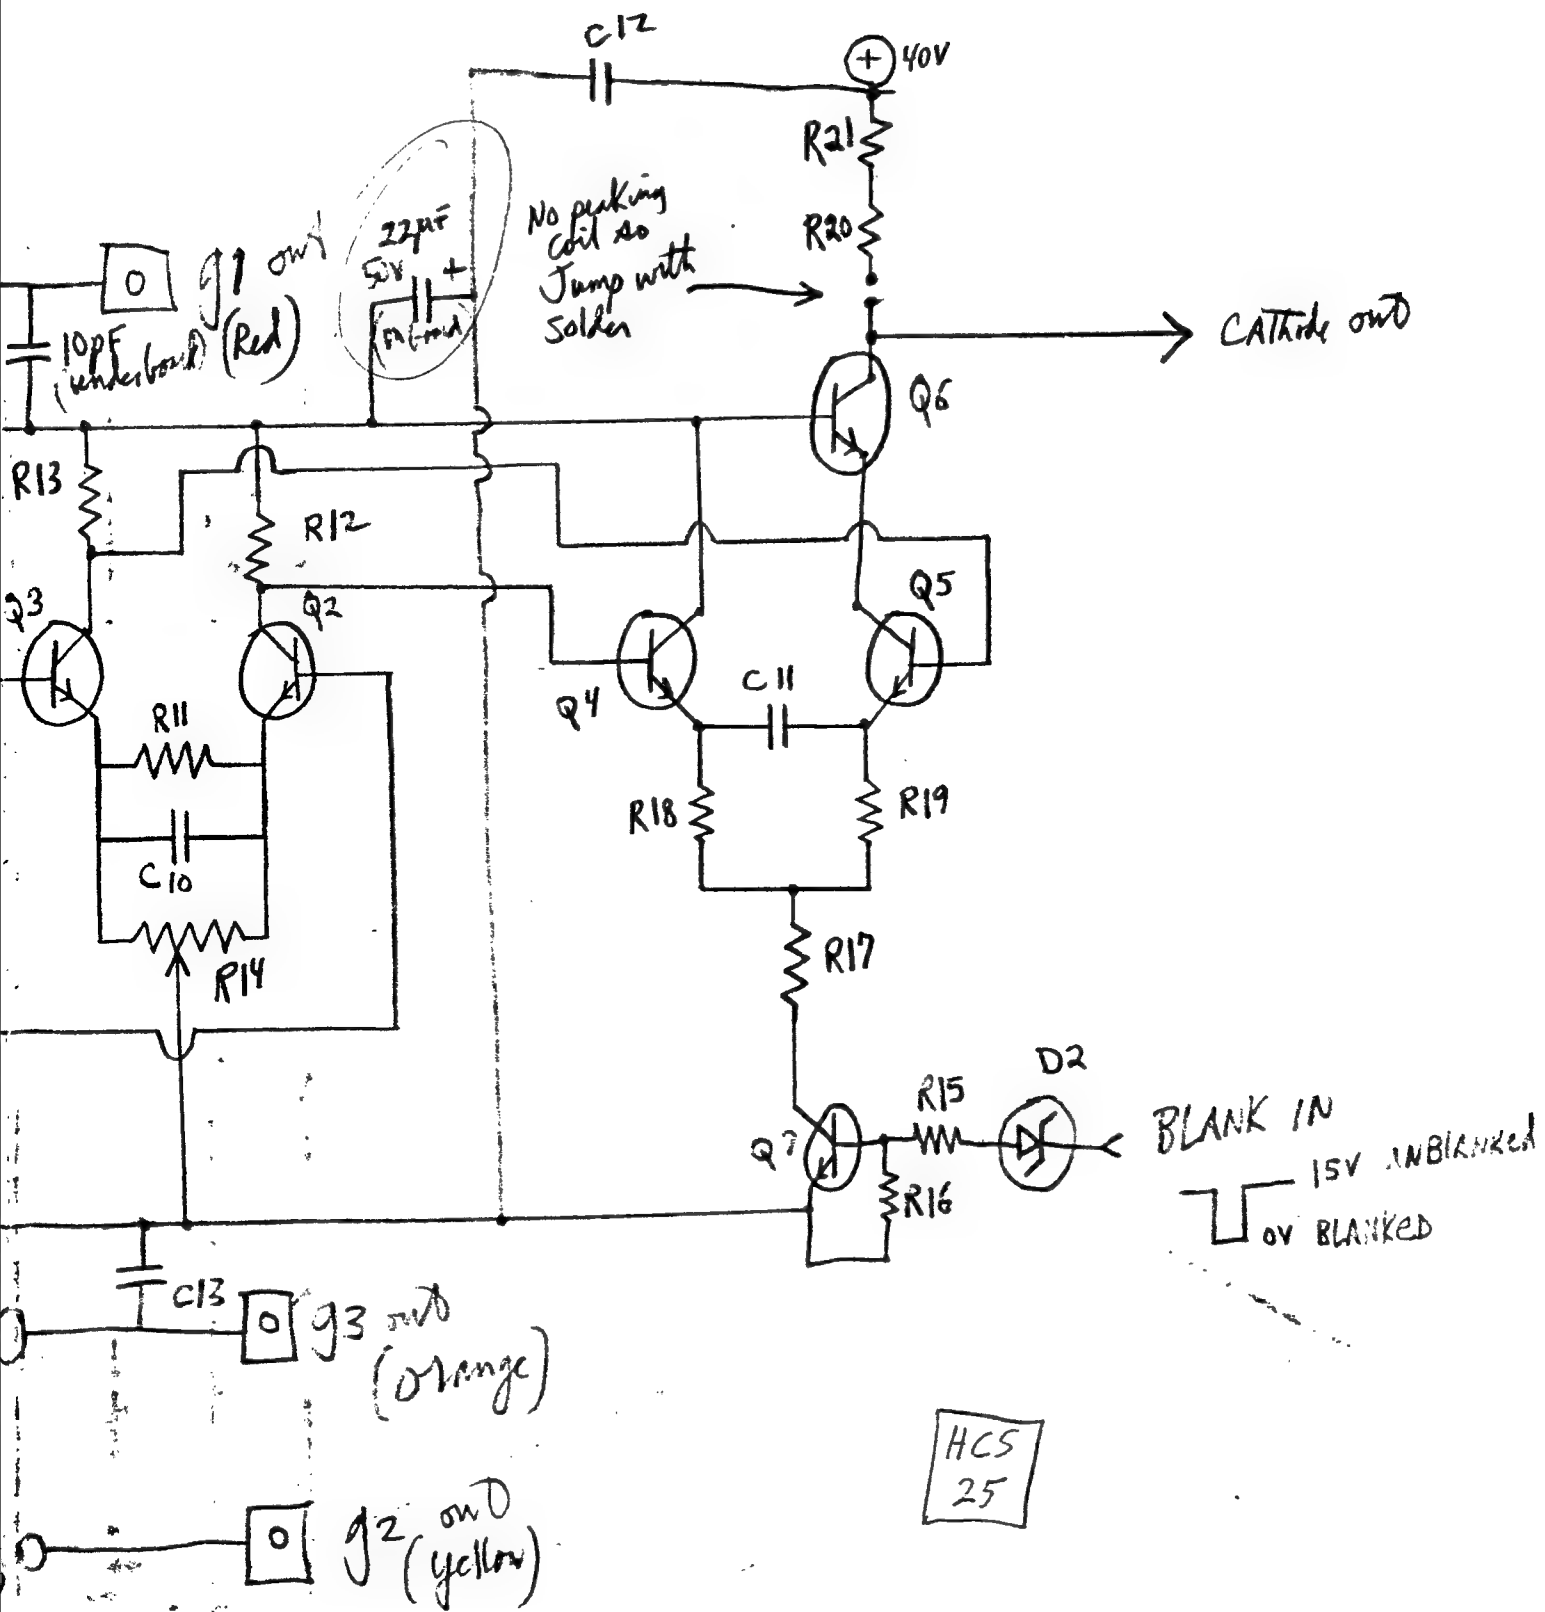 C12
+ 40V
R21
R20
No peaking
coil so
Jump with
solder
22µF
50V +
g1 out
(Red)
10pF
(underboard)
CAThode out
Q6
R13
R12
Q3
Q2
Q5
Q4
C11
R11
R18
R19
C10
R14
R17
D2
R15
Q7
R16
BLANK IN
15V UNBLANKED
0V BLANKED
C13
g3 out
(orange)
HCS
25
g2 out
(yellow)